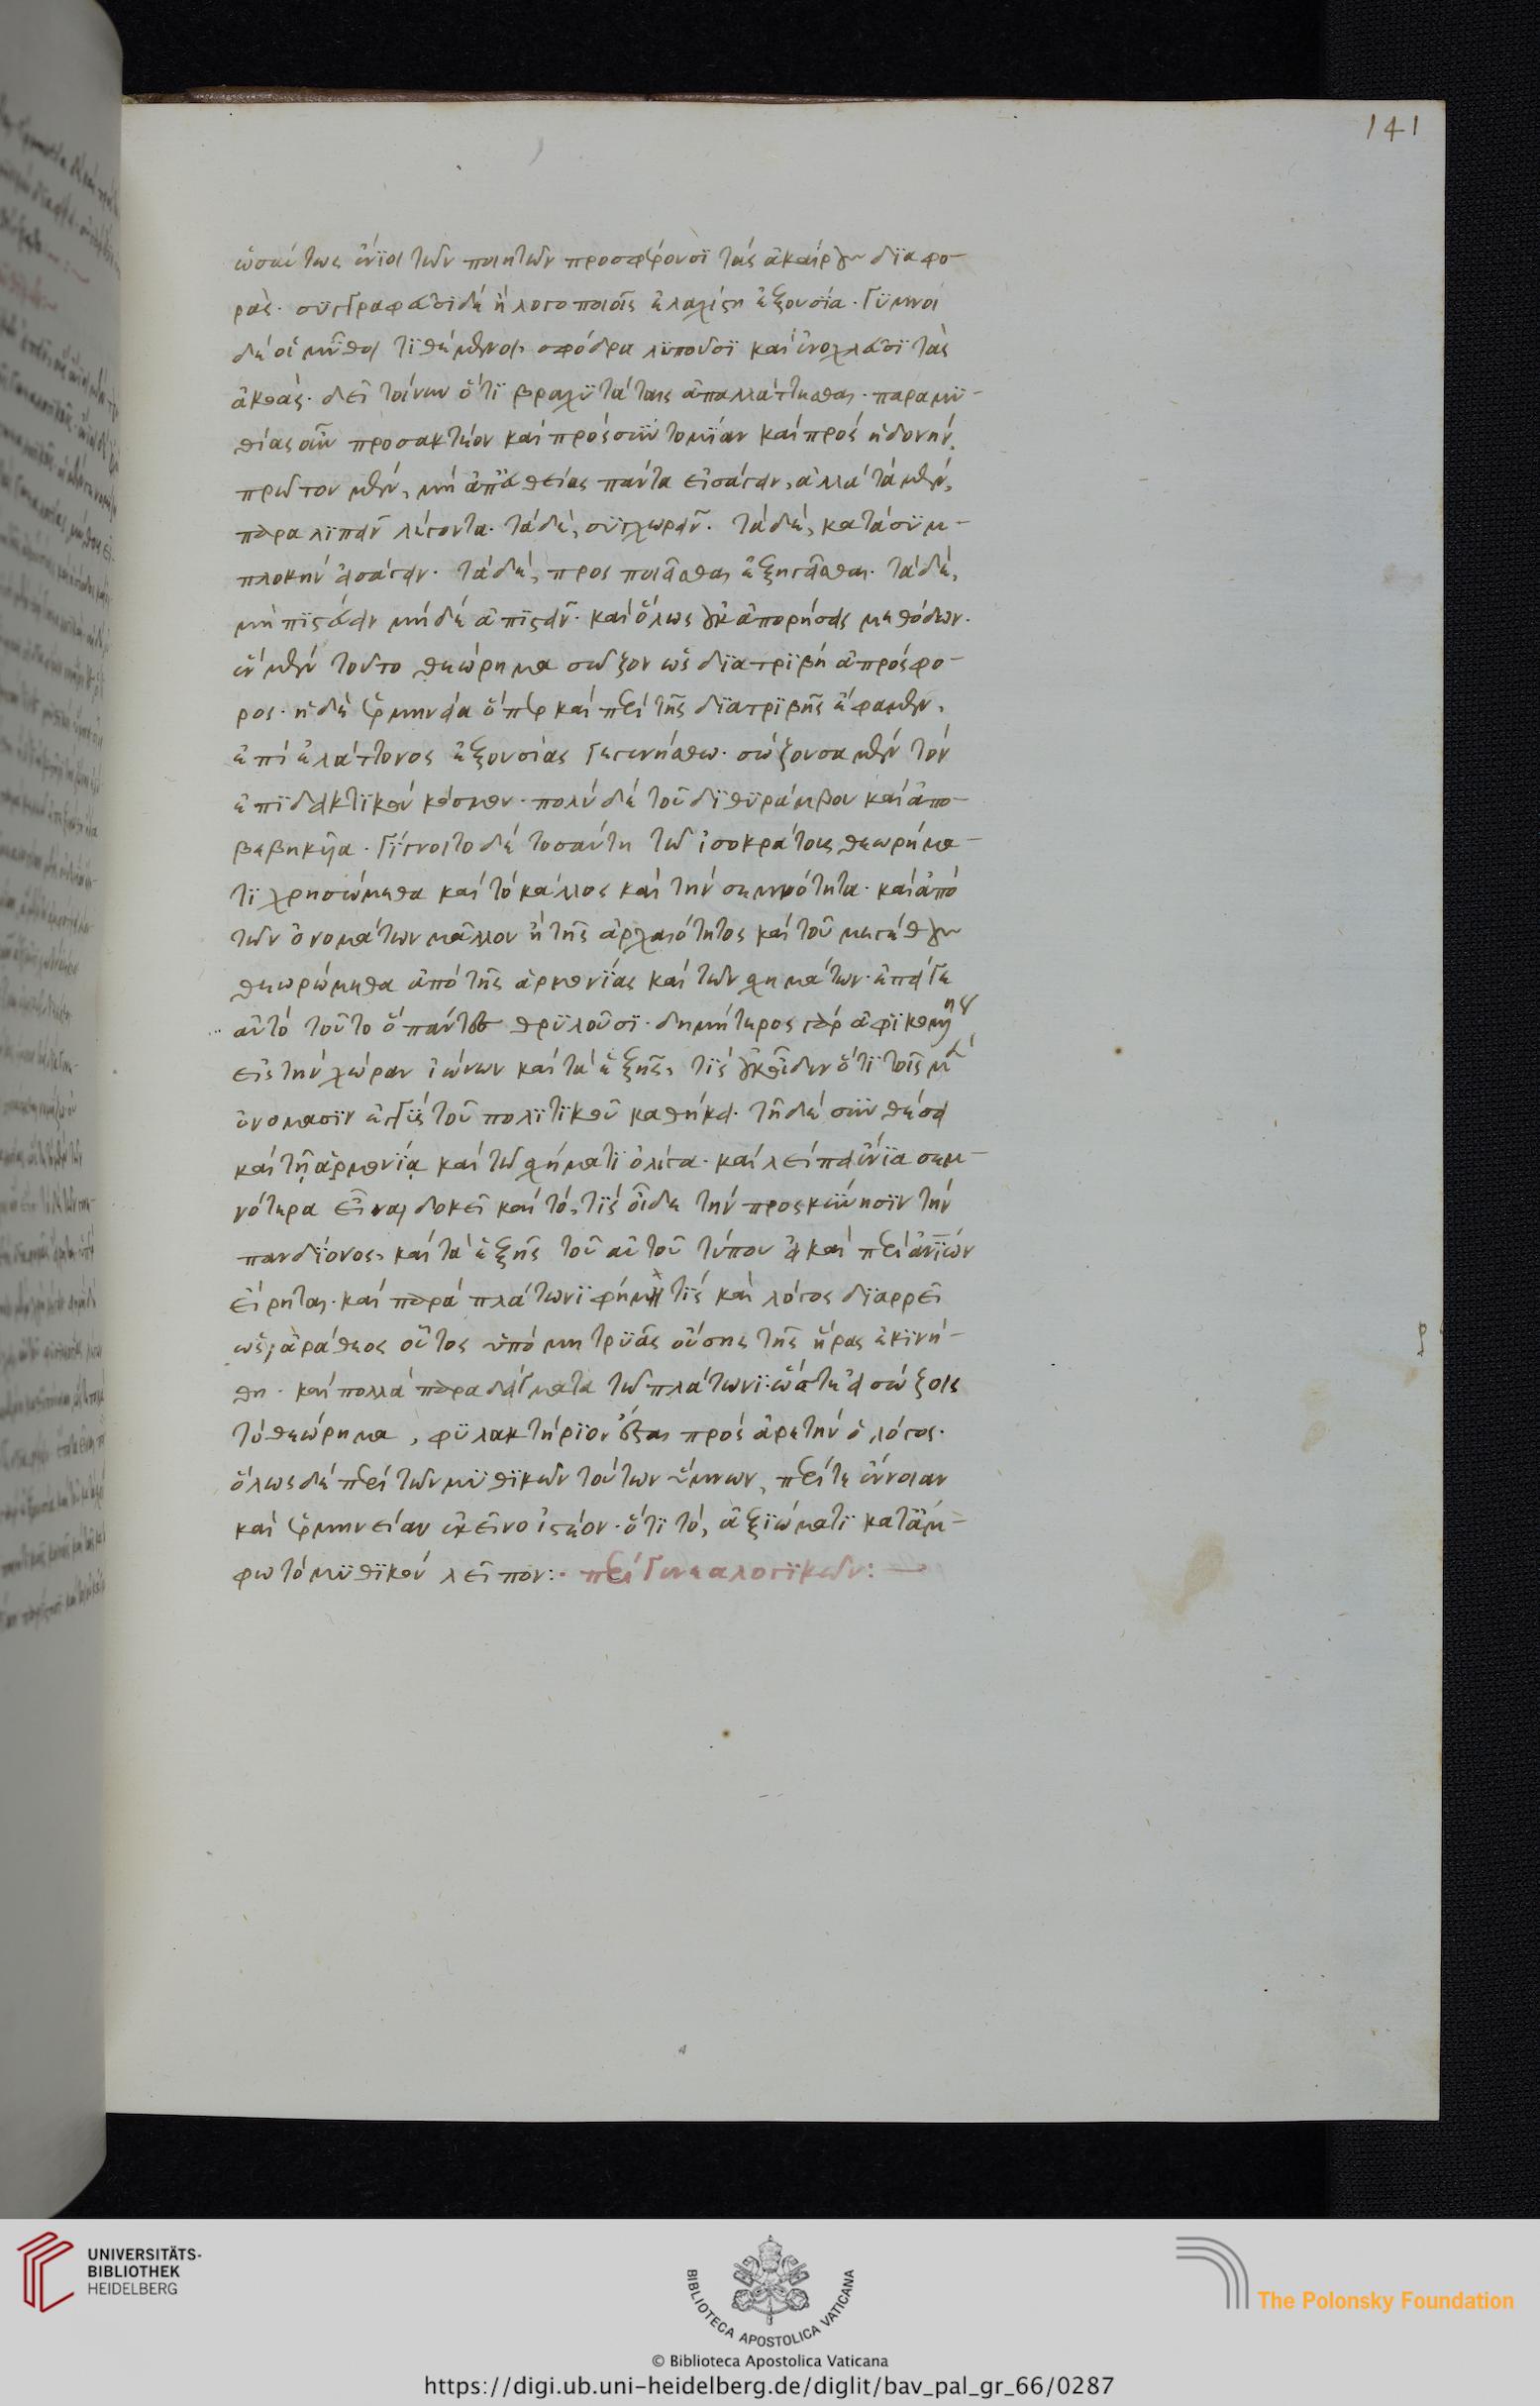 141
ὡσαύτως ἔνϊοι τῶν ποιητῶν προσφέρουσϊ τὰς ἀκαίρους δϊαφο-
ράς· συγγραφεῦσϊ δὲ ἢ λογοποιοῖς ἐλαχίστη ἐξουσία· γϋμνοὶ
δὲ οἱ μῦθοι τϊθέμενοι σφόδρα λϋποῦσϊ καὶ ἐνοχλοῦσϊ τὰς
ἀκοάς· δεῖ τοίνυν ὅτϊ βραχϋτάτοις ἀπαλλάττεσθαι· παραμϋ-
θίας οὖν προσακτέον καὶ πρὸς σϋντομίαν καὶ πρὸς ἡδονήν,
πρῶτον μὲν, μὴ ἀπ' εὐθείας πάντα εἰσάγειν, ἀλλὰ τὰ μὲν,
παραλϊπεῖν λέγοντα· τὰ δὲ, συγχωρεῖν· τὰ δὲ, κατὰ σϋμ-
πλοκὴν εἰσάγειν· τὰ δὲ, προσποιεῖσθαι ἐξηγεῖσθαι· τὰ δὲ,
μὴ πϊστεύειν μὴ δὲ ἀπϊστεῖν· καὶ ὅλως οὐκ ἀπορήσεις μεθόδων.
ἓν μὲν τοῦτο θεώρημα σῶζον ὡς δϊατρϊβὴ ἀπρόσφο-
ρος· ἡ δὲ ἑρμηνεία ὅπερ καὶ περὶ τῆς δϊατρϊβῆς ἔφαμεν,
ἐπὶ ἐλάττονος ἐξουσίας γεγενήσθω· σώζουσα μὲν τὸν
ἐπϊδεικτϊκὸν κόσμον· πολὺ δὲ τοῦ δϊθϋράμβου καὶ ἀπο-
βεβηκυῖα· γίγνοιτο δὲ τοσαύτη τῶ ἰσοκράτους θεωρήμα-
τϊ χρησώμεθα καὶ τὸ κάλλος καὶ τὴν σεμνότητα· καὶ ἀπὸ
τῶν ὀνομάτων μᾶλλον ἢ τῆς ἀρχαιότητος καὶ τοῦ μεγέθους
θεωρώμεθα ἀπὸ τῆς ἁρμονϊας καὶ τῶν σχημάτων· ἐπεί γε
αὐτὸ τοῦτο ὃ πάντες θρϋλοῦσϊ· δημήτερος γὰρ ἀφϊκομένης
εἰς τὴν χώραν ἰώνων καὶ τὰ ἑξῆς, τίς οὐκ οἶδεν ὅτϊ τοῖς μὲν
ὀνόμασϊν ἐγγὺς τοῦ πολϊτϊκοῦ καθήκει· τῆ δὲ σϋνθέσει
καὶ τῇ ἁρμονίᾳ καὶ τῶ σχήματϊ ὀλίγα· καὶ λείπει ἔνϊα σεμ-
νότερα εἶναι δοκεῖ καὶ τό, τίς οἶδε τὴν προσκύνησϊν τὴν
πανδϊόνος, καὶ τὰ ἑξῆς τοῦ αὐτοῦ τύπου ἃ καὶ περὶ ἀνϊὼν
εἴρηται· καὶ παρὰ πλάτωνϊ φήμη τϊς καὶ λόγος δϊαρρεῖ
ὡς, ἄρα θεος οὗτος ὑπὸ μητρϋᾶς οὔσης τῆς ἥρας ἐκϊνή-
θη· καὶ πολλὰ παραδείγματα τῶ πλάτωνϊ· ὥστε εἰ σώζοις
τὸ θεώρημα, φϋλακτήρϊον ἔσται πρὸς ἀρετὴν ὁ λόγος.
ὅλως δὲ περὶ τῶν μϋθϊκῶν τούτων ὕμνων, περί τε ἔννοιαν
καὶ ἑρμηνείαν ἐκεῖνο ἰστέον· ὅτϊ τὸ, ἀξϊώματϊ κατάμ-
φω τὸ μϋθϊκὸν λεῖπον:· περὶ γενεαλογϊκῶν:
UNIVERSITÄTS-
BIBLIOTHEK
HEIDELBERG
BIBLIOTECA APOSTOLICA VATICANA
The Polonsky Foundation
© Biblioteca Apostolica Vaticana
https://digi.ub.uni-heidelberg.de/diglit/bav_pal_gr_66/0287